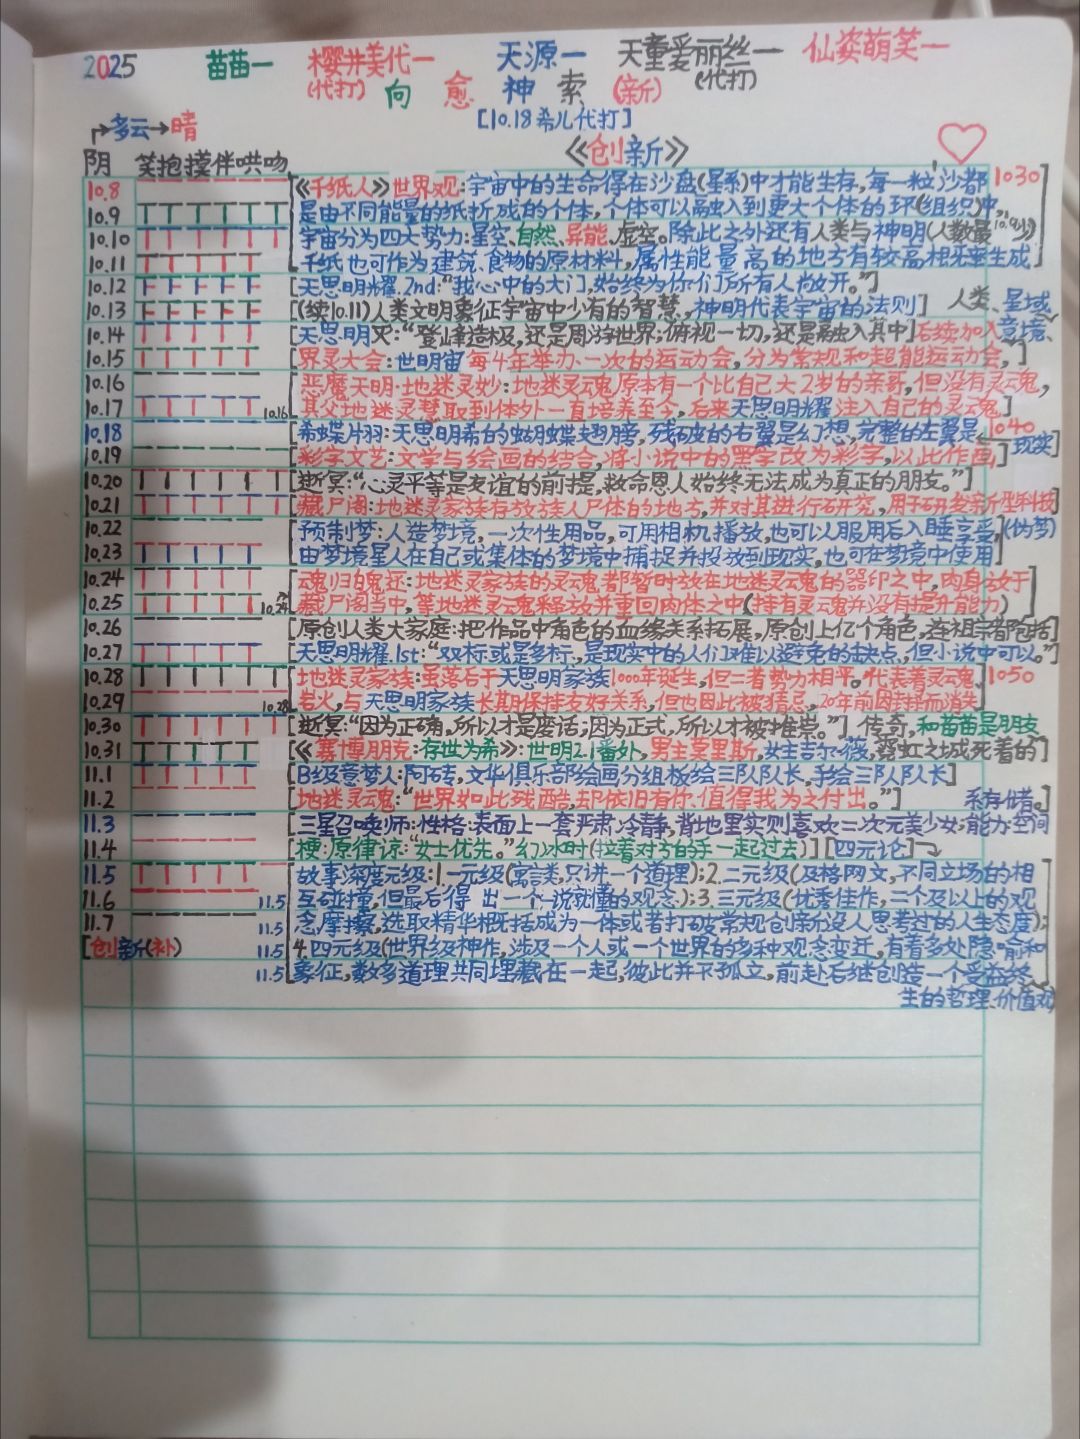 2025 苗苗一 樱井美代一 天源一 天童爱丽丝一 仙姿萌笑一
(代打) 向 愈 神 索 (新) (代打)
[10.18希儿代打]
多云→晴
《创新》
阴 笑抱摸伴哄吻
10.8 [《千纸人》世界观:宇宙中的生命得在沙盘(星系)中才能生存,每一粒沙都 1030
10.9 是由不同能量的纸折成的个体,个体可以融入到更大个体的环(组织)中,
10.10 宇宙分为四大势力:星空、自然、异能、虚空。除此之外还有人类与神明(人数最少) 10.9
10.11 千纸也可作为建筑、食物的原材料,属性能量高的地方有较高概率生成
10.12 [天思明耀.2nd:“我心中的大门,始终为你们所有人敞开。”]
10.13 [(续10.11)人类文明象征宇宙中少有的智慧,神明代表宇宙的法则] 人类、星域、
10.14 [天思明灵:“登峰造极,还是周游世界;俯视一切,还是融入其中]后续加入意境、
10.15 [界灵大会:世明宙每4年举办一次的运动会,分为常规和超能运动会,]
10.16 [恶魔天明·地迷灵妙:地迷灵魂原本有一个比自己大2岁的亲哥,但没有灵魂,
10.17 10.16 其父地迷灵慧取到体外一直培养至今,后来天思明耀注入自己的灵魂]
10.18 [希蝶片羽:天思明希的蝴蝶翅膀,残破的右翼是幻想,完整的左翼是 1040
10.19 [彩字文艺:文学与绘画的结合,将小说中的黑字改为彩字,以此作画,] 现实]
10.20 [逝冥:“心灵平等是友谊的前提,救命恩人始终无法成为真正的朋友。”]
10.21 [藏尸阁:地迷灵家族存放族人尸体的地方,并对其进行研究,用于研发新型科技]
10.22 [预制梦:人造梦境,一次性用品,可用相机播放,也可以服用后入睡享受,(伪梦)
10.23 由梦境星人在自己或集体的梦境中捕捉并投放到现实,也可在梦境中使用]
10.24 [魂归魄还:地迷灵家族的灵魂者都暂时放在地迷灵魂的器印之中,肉身放于
10.25 10.24 藏尸阁当中,等地迷灵魂释放并重回肉体之中(持有灵魂并没有提升能力)]
10.26 [原创人类大家庭:把作品中角色的血缘关系拓展,原创上亿个角色,连祖宗都包括]
10.27 [天思明耀.1st:“双标或是多标,是现实中的人们难以避免的缺点,但小说中可以。”]
10.28 [地迷灵家族:虽落后于天思明家族1000年诞生,但二者势力相平。代表着灵魂、1050
10.29 10.28 岩火,与天思明家族长期保持友好关系,但也因此被猜忌,20年前因封持而消失]
10.30 [逝冥:“因为正确,所以才是废话;因为正式,所以才被推崇。”] 传奇,和苗苗是朋友
10.31 [《赛博朋克:存世为希》:世明2.1番外,男主莫里斯,女主吉尔·薇,霓虹之城死着的]
11.1 [B级意梦人:阿砖,文华俱乐部绘画分组板绘三队队长,手绘三队队长]
11.2 [地迷灵魂:“世界如此残酷,却依旧有你、值得我为之付出。”] 系存储。]
11.3 [三星召唤师:性格:表面上一套严肃冷静,背地里实则喜欢二次元美少女;能力:空间
11.4 [梗:原律谅:“女士优先。”幻冰时(拉着对方的手一起过去)] [四元论]
11.5 [故事深度元级:1.一元级(寓言类,只讲一个道理);2.二元级(及格网文,不同立场的相
11.6 11.5 互碰撞,但最后得出一个一说就懂的观念);3.三元级(优秀佳作,三个及以上的观
11.7 11.5 念摩擦,选取精华概括成为一体或者打破常规创新没人思考过的人生态度);
[创新(补) 11.5 4.四元级(世界级神作,涉及一个人或一个世界的多种观念变迁,有着多处隐喻和
11.5 象征,数多道理共同埋藏在一起,彼此并不孤立,前赴后继创造一个受益终
生的哲理、价值观]